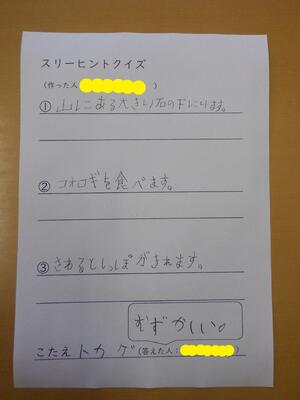 スリーヒントクイズ
(作った人 )
① 山にある大きい石の下にいます。
② コオロギを食べます。
③ さわるとしっぽがきれます。
むずかしい。
こたえ トカゲ (答えた人: )